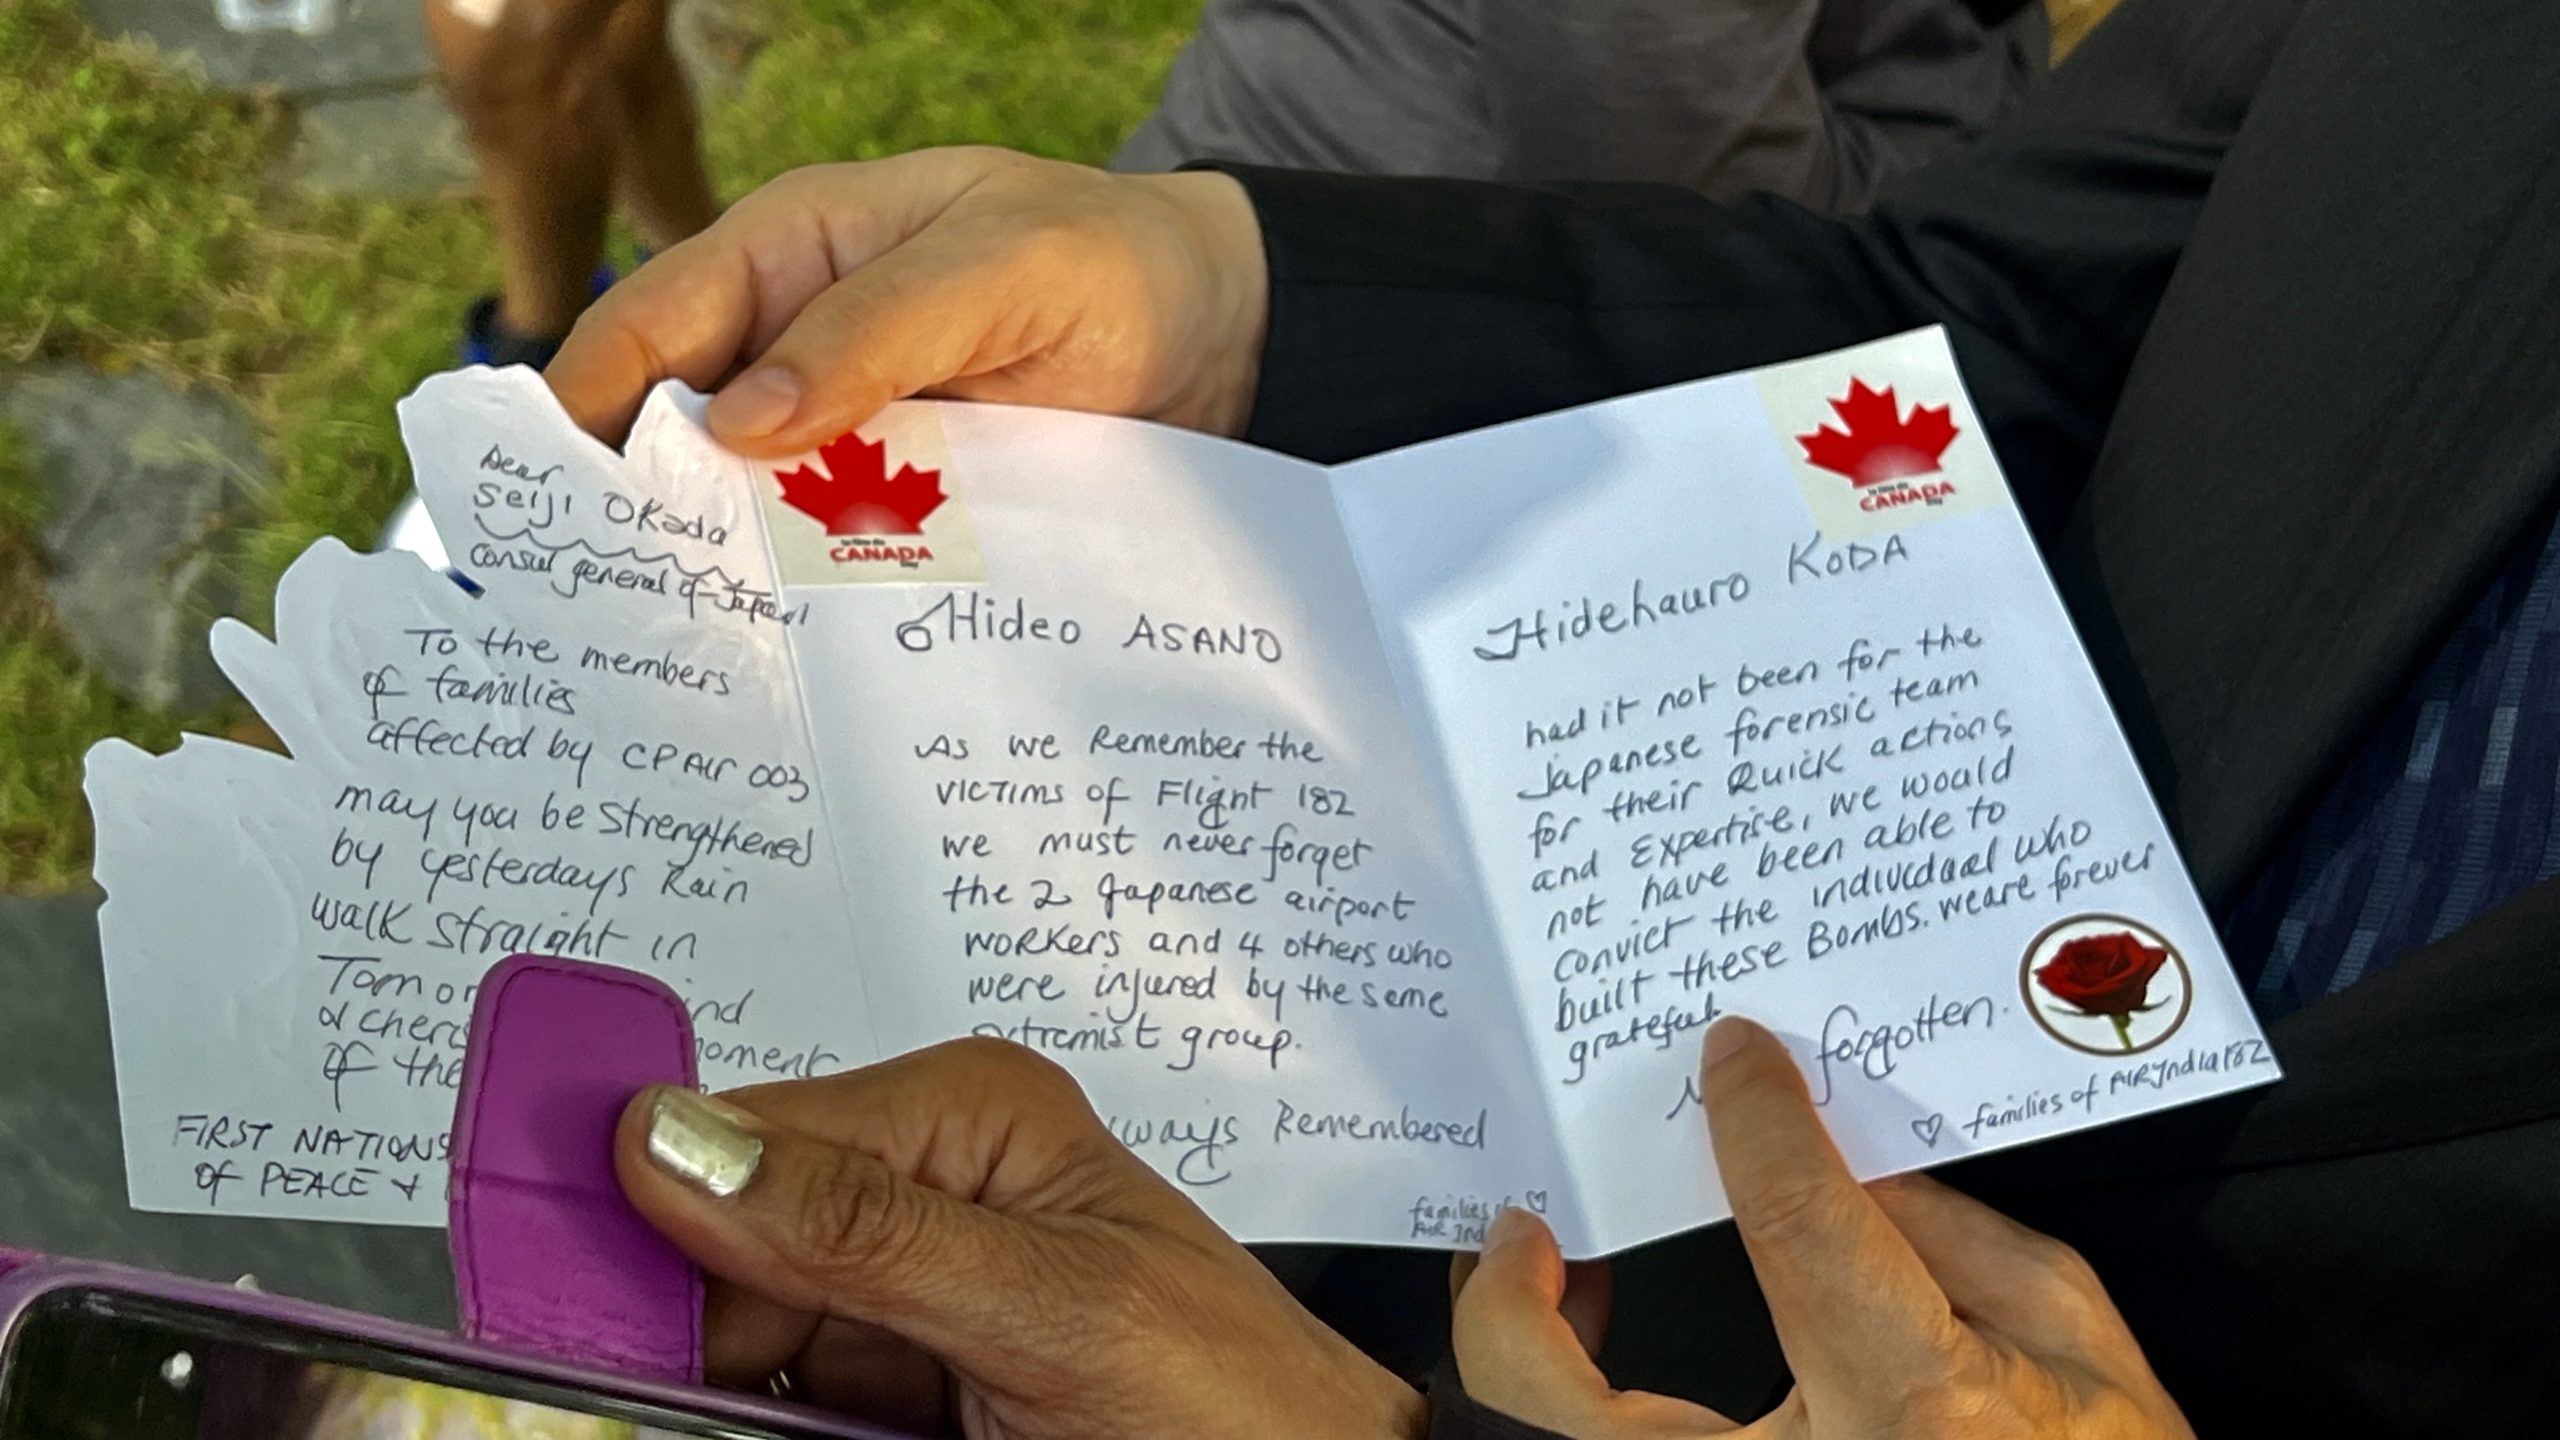 Dear
Seiji Okada
Consul general of Japan
To the members
of families
affected by CP Air 003
may you be strengthened
by yesterdays Rain
walk straight in
of the
FIRST NATIONS
of PEACE +
CANADA
Hideo ASANO
As we Remember the
VICTIMS of Flight 182
we must never forget
the 2 Japanese airport
WORKERS and 4 others who
were injured by the same
group.
Remembered
families of ♡
AIR
CANADA
Hidehauro KODA
had it not been for the
Japanese forensic team
for their Quick actions
and Expertise, we would
not have been able to
Convict the individael who
built these Bombs. we are forever
grateful.
forgotten.
♡ families of AIR India 182